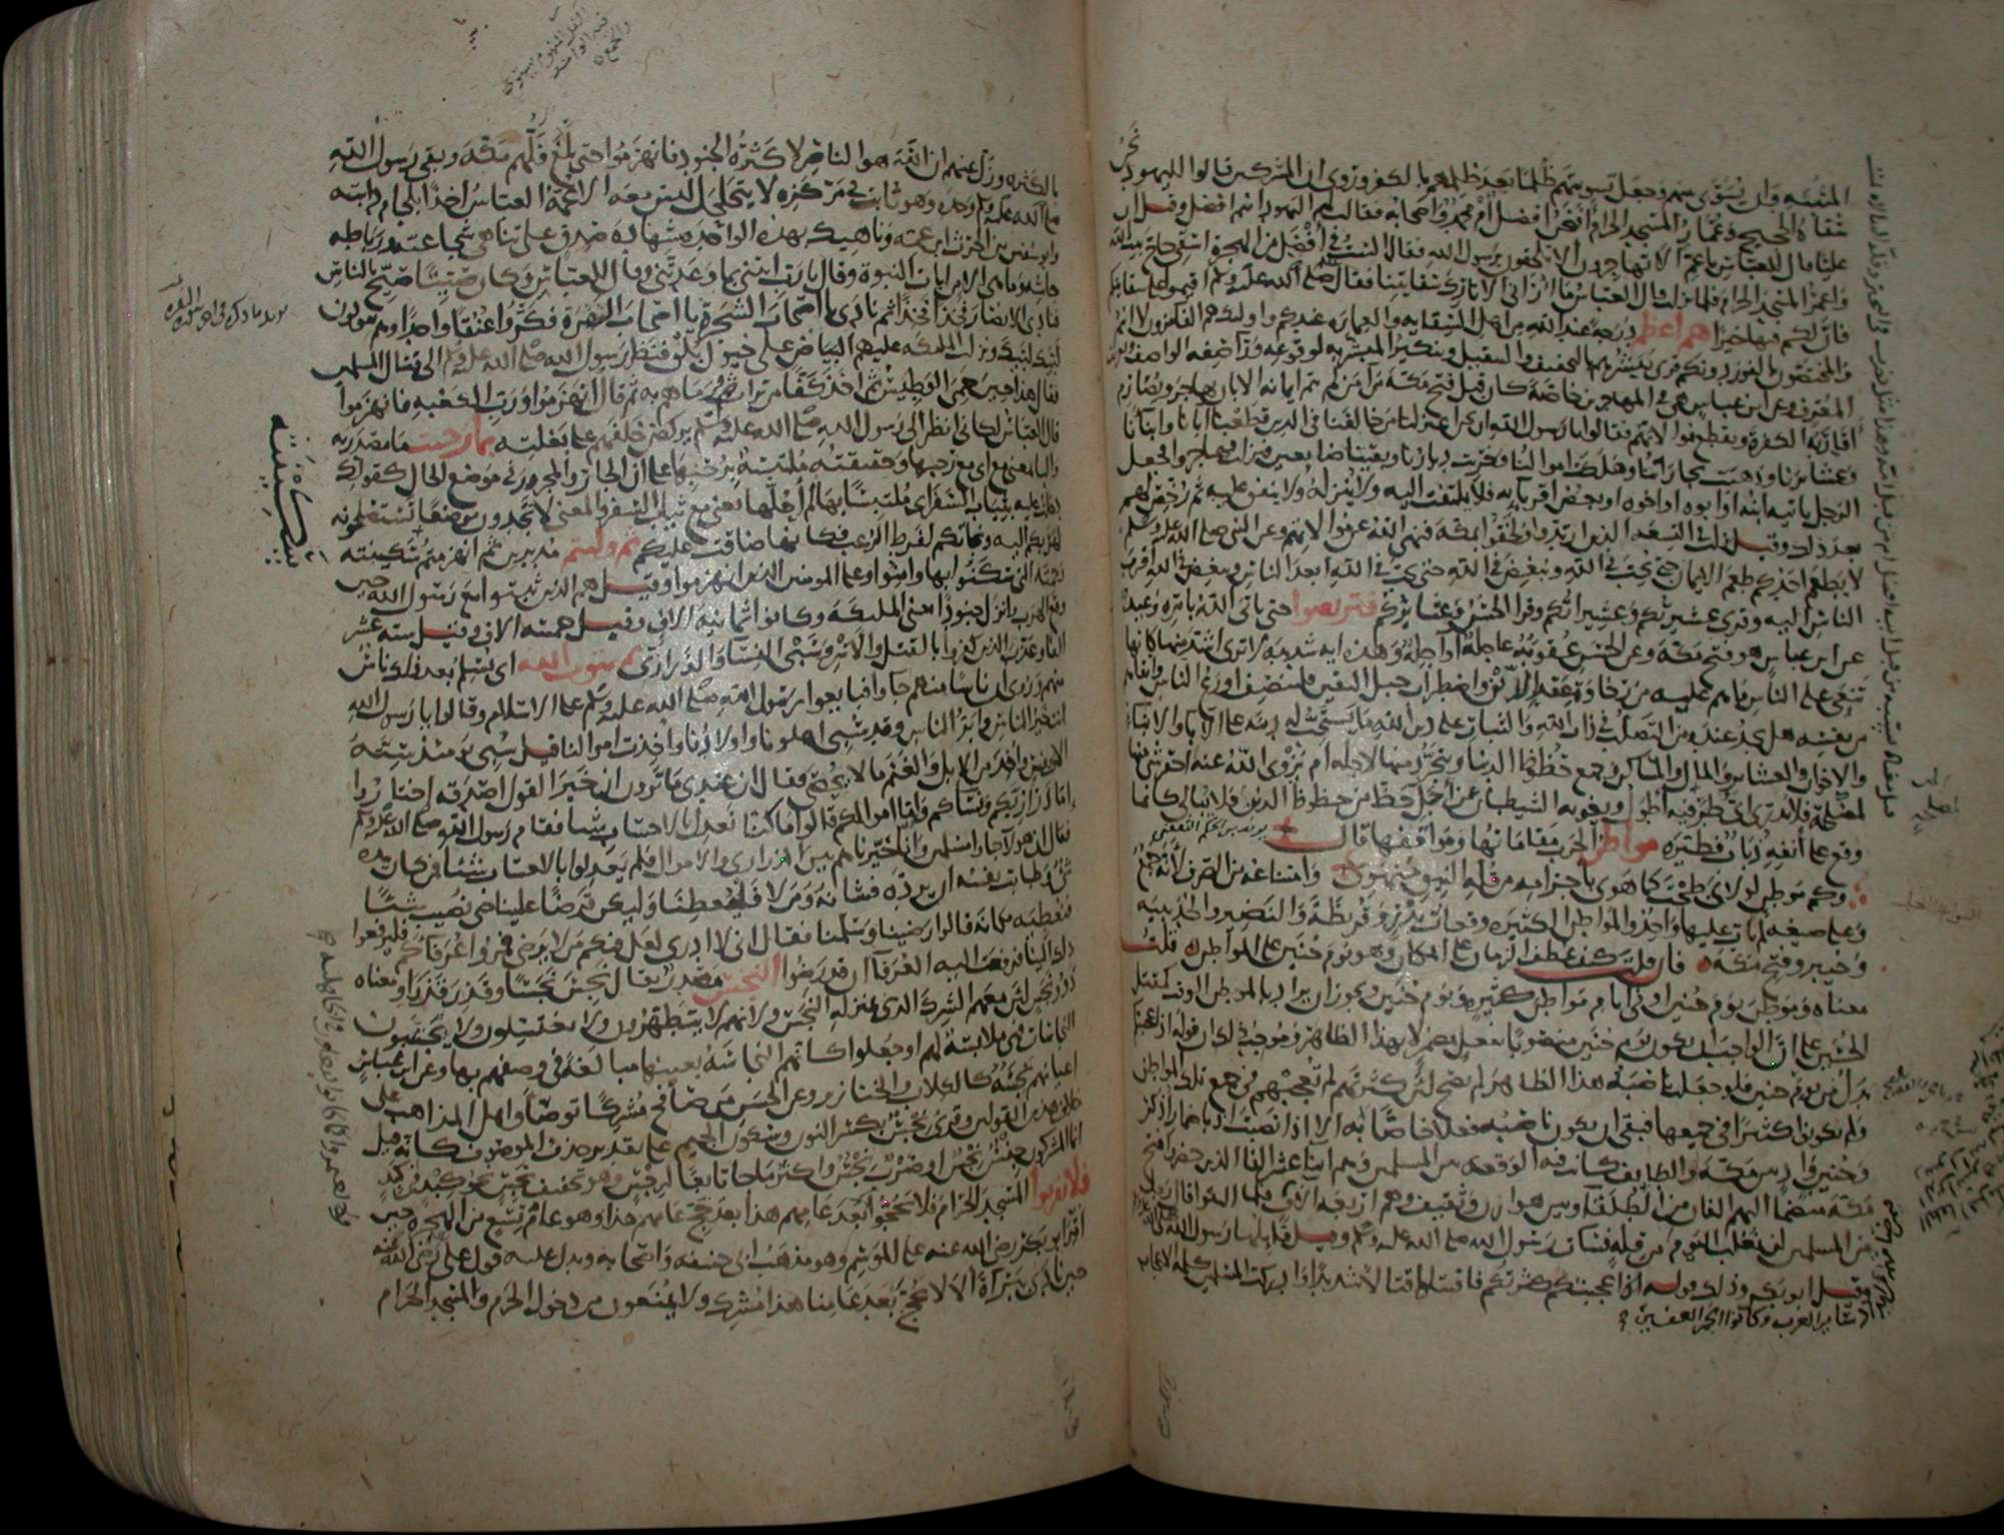 المثبتة وان يسوى بينهم وجعل تسويتهم ظلما بعد ظلمهم بالكفر وروى ان المشركين قالوا لليهود نحن
سقاة الحجيج وعمار المسجد الحرام افنحن افضل ام محمد واصحابه فقالت لهم اليهود انتم افضل وقيل ان
عليا قال للعباس يا عم الا تهاجرون الا تلحقون برسول الله فقال الست في افضل من الهجرة اسقي حاج بيت الله
واعمر المسجد الحرام فلما نزلت قال العباس ما اراني الا تارك سقايتنا فقال صلى الله عليه وسلم اقيموا على سقايتكم
فان لكم فيها خيرا هم اعظم درجة عند الله من اهل السقاية والعمارة عندكم واولئك هم الفائزون لا انتم
والمختصون بالفوز دونكم قرى يبشرهم بالتخفيف والتثقيل وتنكير المبشر به لوقوعه وراء صفة الواصف وتعريف
المعرف وعن ابن عباس هي في المهاجرين خاصة كان قبل فتح مكة من آمن لم يتم ايمانه الا بان يهاجر ويصارم
اقاربه الكفرة ويقطع موالاتهم فقالوا يا رسول الله ان نحن اعتزلنا من خالفنا في الدين قطعنا آبانا وابنانا
وعشائرنا وذهبت تجاراتنا وهلكت اموالنا وخربت ديارنا وبقينا ضائعين فنزلت فهاجروا فجعل
الرجل ياتيه ابنه او ابوه او اخوه او بعض اقربائه فلا يلتفت اليه ولا ينزله ولا ينفق عليه ثم رخص لهم
بعد ذلك وقيل نزلت في التسعة الذين ارتدوا ولحقوا بمكة فنهى الله عن موالاتهم وعن النبي صلى الله عليه وسلم
لا يطعم احدكم طعم الايمان حتى يحب في الله ويبغض في الله حتى يحب في الله ابعد الناس ويبغض في الله اقرب
الناس اليه وقرى عشيرتكم وعشيراتكم وقرا الحسن وعشائركم فتربصوا حتى ياتي الله بامره وعيد
عن ابن عباس هو فتح مكة وعن الحسن عقوبة عاجلة او آجلة وهذه اية شديدة لا ترى اشد منها كانها
تنعى على الناس ما هم عليه من رخاوة عقد الدين واضطراب حبل اليقين فلينصف اورع الناس واتقاهم
من نفسه هل يجد عنده من التصلب في ذات الله والثبات على دين الله ما يستحب له دينه على الآباء والابناء
والاخوان والعشائر والمال والمساكن وجميع حظوظ الدنيا ويتجرد منها لاجله ام يزوي الله عنه احقر شيء منها
لمصلحته فلا يدري اي طرفيه اطول ويغويه الشيطان عن اجل حظ من حظوظ الدين فلا يبالي كانما
وقع على انفه ذباب فطيره مواطن الحرب مقاماتها ومواقفها قال
وكم موطن لولاي طحت كما هوى باجرامه من قلة النيق منهوي وامتناعه من الصرف لانه جمع
وعلى صيغة لم يات عليها واحد والمواطن الكثيرة وقعات بدر وقريظة والنضير والحديبية
وخيبر وفتح مكة فان قلت كيف عطف الزمان على المكان وهو يوم حنين على المواطن قلت
معناه وموطن يوم حنين او في ايام مواطن كثيرة ويوم حنين ويجوز ان يراد بالموطن الوقت كمقتل
الحسين على ان الواجب ان يكون يوم حنين منصوبا بفعل مضمر لا بهذا الظاهر وموجب ذلك ان قوله اذ اعجبتكم
بدل من يوم حنين فلو جعلت ناصبه هذا الظاهر لم يصح لان كثرتهم لم تعجبهم في جميع تلك المواطن
ولم يكونوا كثيرا في جميعها فبقي ان يكون ناصبه فعلا خاصا به الا اذا نصبت اذ باضمار اذكر
وحنين واد بين مكة والطائف كانت فيه الوقعة بين المسلمين وهم اثنا عشر الفا الذين حضروا فتح
مكة منضما اليهم الفان من الطلقاء وبين هوازن وثقيف وهم اربعة آلاف فلما التقوا قال رجل
من المسلمين لن نغلب اليوم من قلة فساءت رسول الله صلى الله عليه وسلم وقيل قائلها رسول الله
وقيل ابو بكر وذلك قوله اذ اعجبتكم كثرتكم فاقتتلوا قتالا شديدا وادركت المسلمين كلمة الاعجاب
بالكثرة وزل عنهم ان الله هو الناصر لا كثرة الجنود فانهزموا حتى بلغ فلهم مكة وبقي رسول الله
صلى الله عليه وسلم وحده وهو ثابت في مركزه لا يتحلحل ليس معه الا عمه العباس اخذا بلجام دابته
وابو سفين بن الحرث ابن عمه وناهيك بهذه الواحدة شهادة صدق على تناهي شجاعته ورباطة
جاشه وما هي الا من ايات النبوة وقال يا رب ائتني بما وعدتني وقال للعباس وكان صيتا صيح بالناس
فنادى الانصار فخذا فخذا ثم نادى يا اصحاب الشجرة يا اصحاب البقرة فكروا عنقا واحدا وهم يقولون
لبيك لبيك ونزلت الملئكة عليهم البياض على خيول بلق فنظر رسول الله صلى الله عليه وسلم الى قتال المسلمين
فقال هذا حين حمي الوطيس ثم اخذ كفا من تراب فرماهم به ثم قال انهزموا ورب الكعبة فانهزموا
قال العباس لكاني انظر الى رسول الله صلى الله عليه وسلم يركض خلفهم على بغلته بما رحبت ما مصدرية
والبا بمعنى مع اي مع رحبها وحقيقته ملتبسة برحبها على ان الجار والمجرور في موضع الحال كقولك
دخلت عليه بثياب السفر اي ملتبسا بها لم احلها تعني مع ثياب السفر والمعنى لا تجدون موضعا تستصلحونه
لهربكم اليه ونجاتكم لفرط الرعب فكانها ضاقت عليكم ثم وليتم مدبرين ثم انهزمتم سكينته
رحمته التي سكنوا بها وامنوا وعلى المومنين الذين انهزموا وقيل هم الذين ثبتوا مع رسول الله حين
وقع الهرب وانزل جنودا يعني الملئكة وكانوا ثمانية الاف وقيل خمسة الاف وقيل ستة عشر
الفا وعذب الذين كفروا بالقتل والاسر وسبي النساء والذراري ثم يتوب الله اي يسلم بعد ذلك ناس
منهم وروى ان ناسا منهم جاوا فبايعوا رسول الله صلى الله عليه وسلم على الاسلام وقالوا يا رسول الله
انت خير الناس وابر الناس وقد سبي اهلونا واولادنا واخذت اموالنا قيل سبي يومئذ ستة
الاف نفس واخذ من الابل والغنم ما لا يحصى فقال ان عندي ما ترون ان خير القول اصدقه اختاروا
اما ذراريكم ونساكم واما اموالكم قالوا ما كنا نعدل بالاحساب شيا فقام رسول الله صلى الله عليه وسلم
فقال ان هولا جاوا مسلمين وانا خيرناهم بين الذراري والاموال فلم يعدلوا بالاحساب شيئا فمن كان بيده
شي وطابت نفسه ان يرده فشانه ومن لا فليعطنا وليكن قرضا علينا حتى نصيب شيئا
فنعطيه مكانه قالوا رضينا وسلمنا فقال اني لا ادري لعل فيكم من لا يرضى فمروا عرفاكم فليرفعوا
ذلك الينا فرفعت اليه العرفا ان قد رضوا النجس مصدر يقال نجس نجسا وقذر قذرا ومعناه
ذوو نجس لان معهم الشرك الذي هو بمنزلة النجس ولانهم لا يتطهرون ولا يغتسلون ولا يجتنبون
النجاسات فهي ملابسة لهم او جعلوا كانهم النجاسة بعينها مبالغة في وصفهم بها وعن ابن عباس
اعيانهم نجسة كالكلاب والخنازير وعن الحسن من صافح مشركا توضا واهل المذاهب على
خلاف هذين القولين وقرى نجس بكسر النون وسكون الجيم على تقدير حذف الموصوف كانه قيل
انما المشركون جنس نجس او ضرب نجس واكثر ما جا تابعا لرجس وهو تخفيف نجس نحو كبد في كبد
فلا يقربوا المسجد الحرام فلا يحجوا بعد عامهم هذا بعد حج عامهم هذا وهو عام تسع من الهجرة حين
امر ابو بكر رضي الله عنه على الموسم وهو مذهب ابي حنيفة واصحابه ويدل عليه قول علي رضي الله عنه
حين نادى ببراة الا لا يحج بعد عامنا هذا مشرك ولا يمنعون من دخول الحرم والمسجد الحرام
سكينته